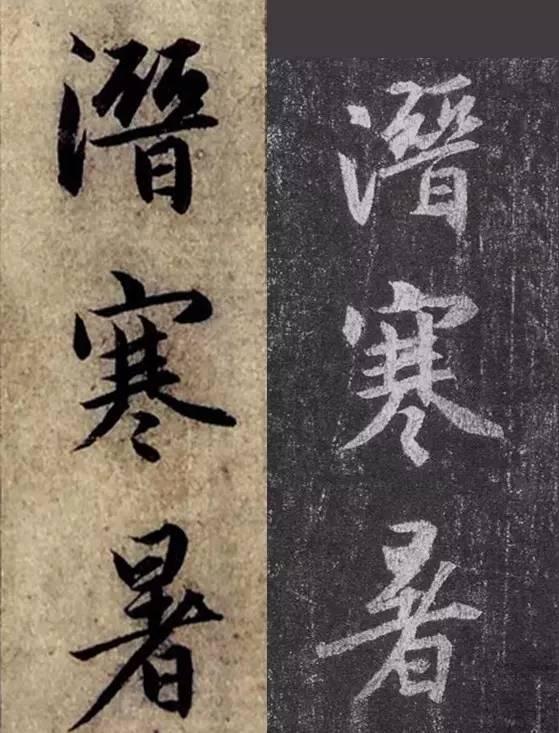 潛寒暑
潛寒暑